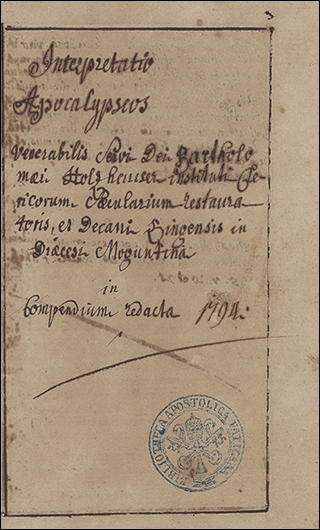 Interpretatio
Apocalypseos
Venerabilis Servi Dei Bartholo
mæi Holzheuser instituti Cle
ricorum sæcularium restaura
toris, et Decani Bingensis in
Diœcesi Moguntina
in
Compendium redacta 1794.
BIBLIOTHECA APOSTOLICA VATICANA